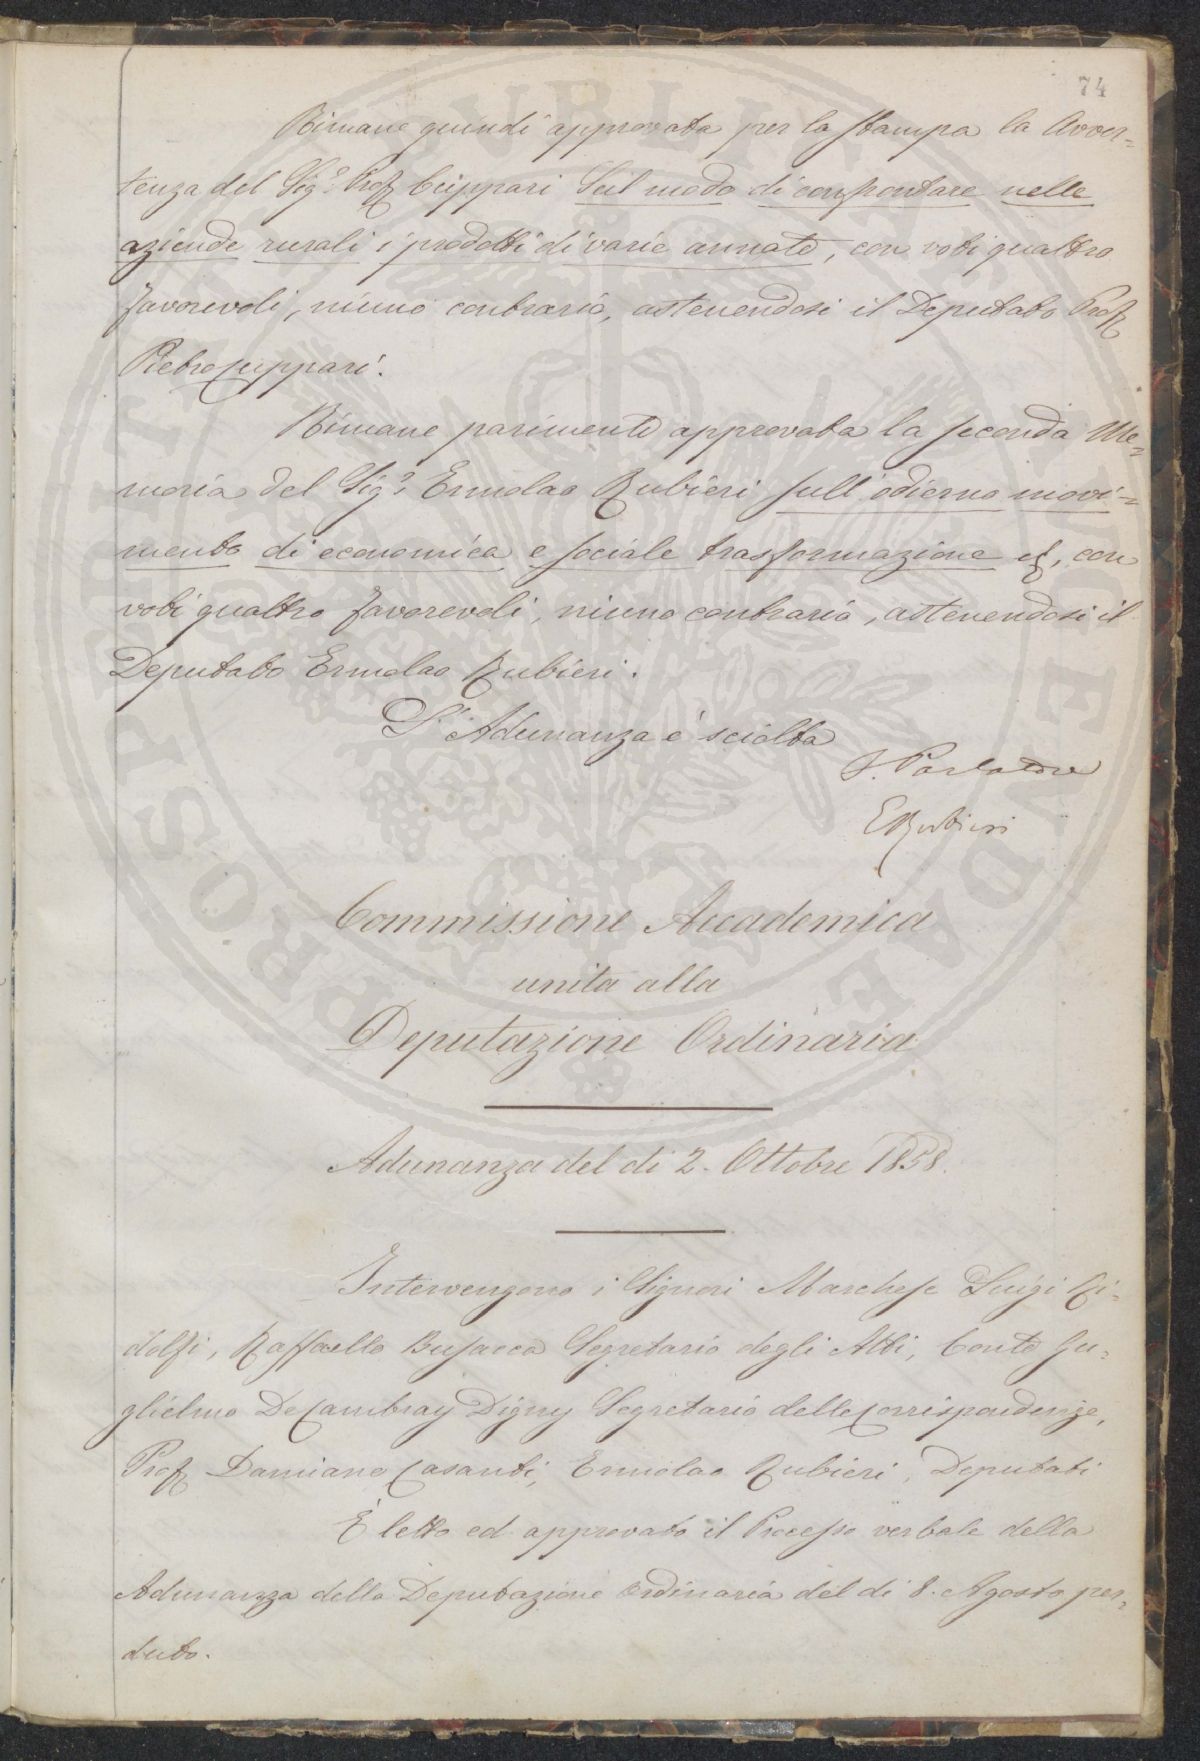 74
Rimane quindi approvata per la stampa la Avver=
tenza del Sig.r Prof. Cuppari Sul modo di confrontare nelle
aziende rurali i prodotti di varie annate, con voti quattro
favorevoli, niuno contrario, astenendosi il Deputato Prof.
Pietro Cuppari.
Rimane parimente approvata la seconda Me=
moria del Sig.r Ermolao Rubieri sull'odierno movi=
mento di economica e sociale trasformazione ec, con
voti quattro favorevoli, niuno contrario, astenendosi il
Deputato Ermolao Rubieri.
L'Adunanza è sciolta
F. Parlatore
E Rubieri
Commissione Accademica
unita alla
Deputazione Ordinaria
Adunanza del dì 2. Ottobre 1858.
Intervengono i Signori Marchese Luigi Ri=
dolfi, Raffaello Busacca Segretario degli Atti, Conte Gu=
glielmo De Cambray Digny Segretario delle Corrispondenze,
Prof. Damiano Casanti, Ermolao Rubieri, Deputati
È letto ed approvato il Processo verbale della
Adunanza della Deputazione Ordinaria del dì 8. Agosto per=
duto.
PROSPERITATI PUBLICAE AUGENDAE